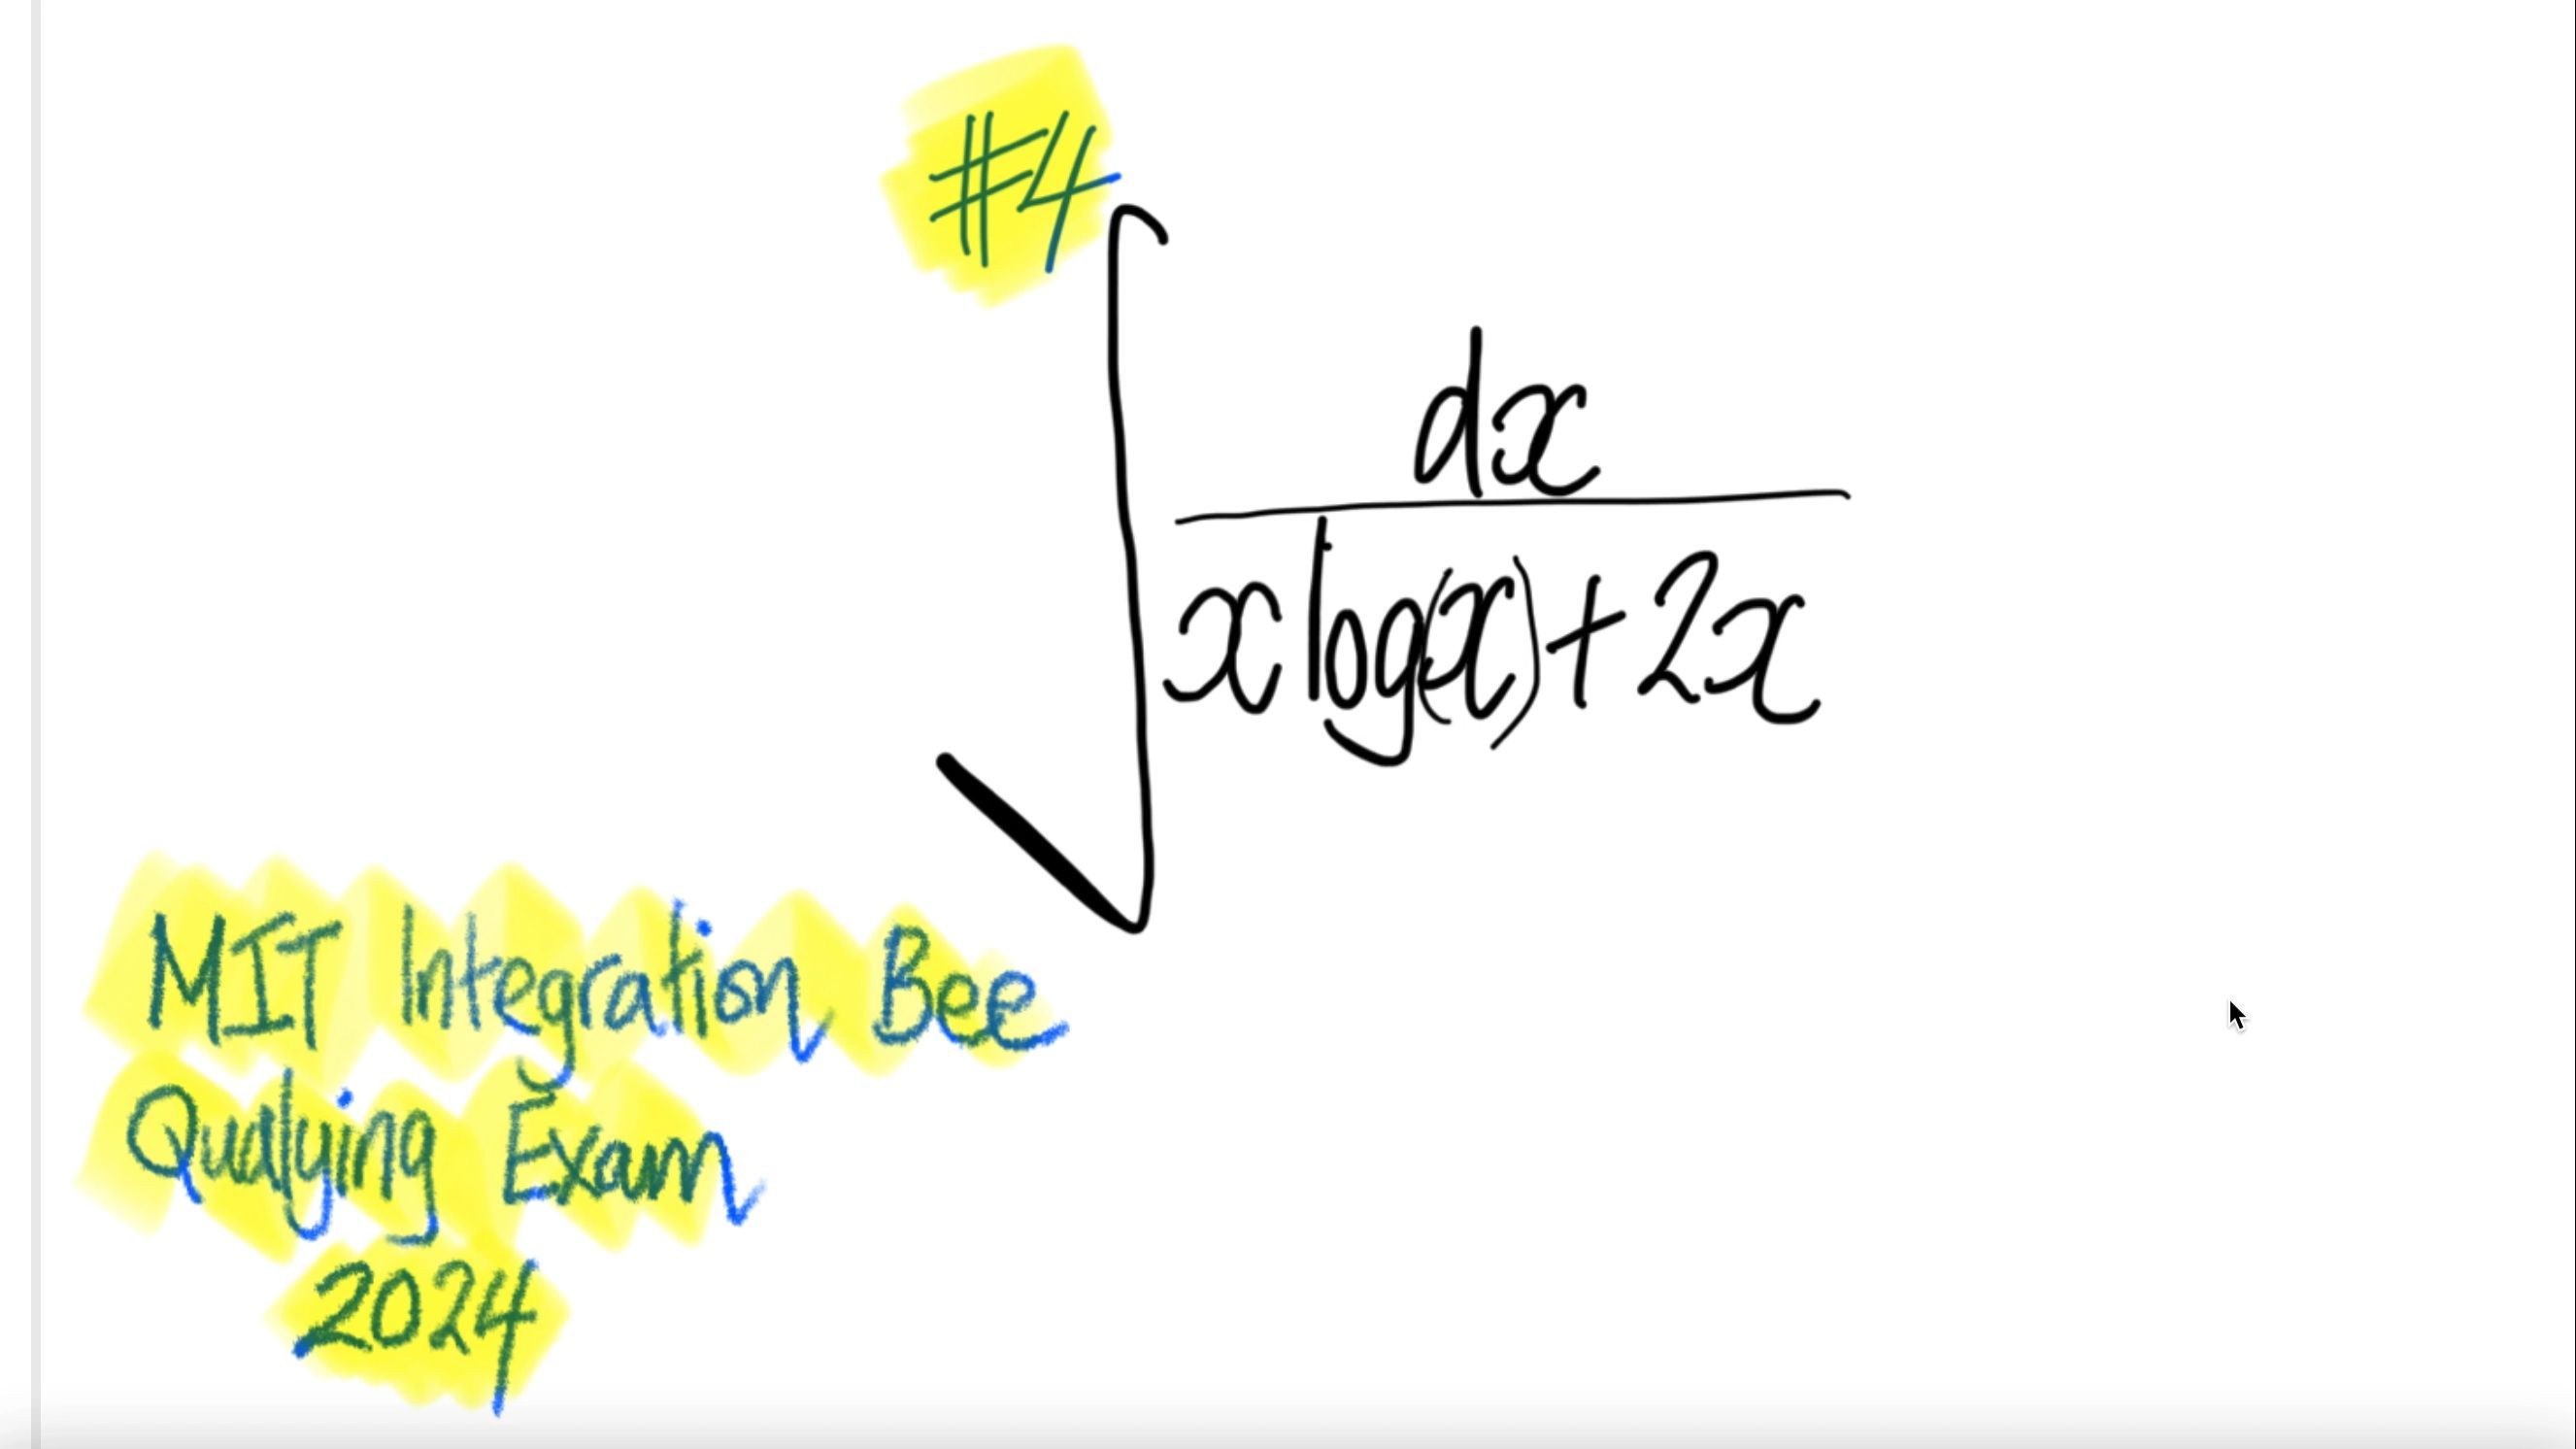 #4
∫ dx
x log(x) + 2x
MIT Integration Bee
Qualying Exam
2024